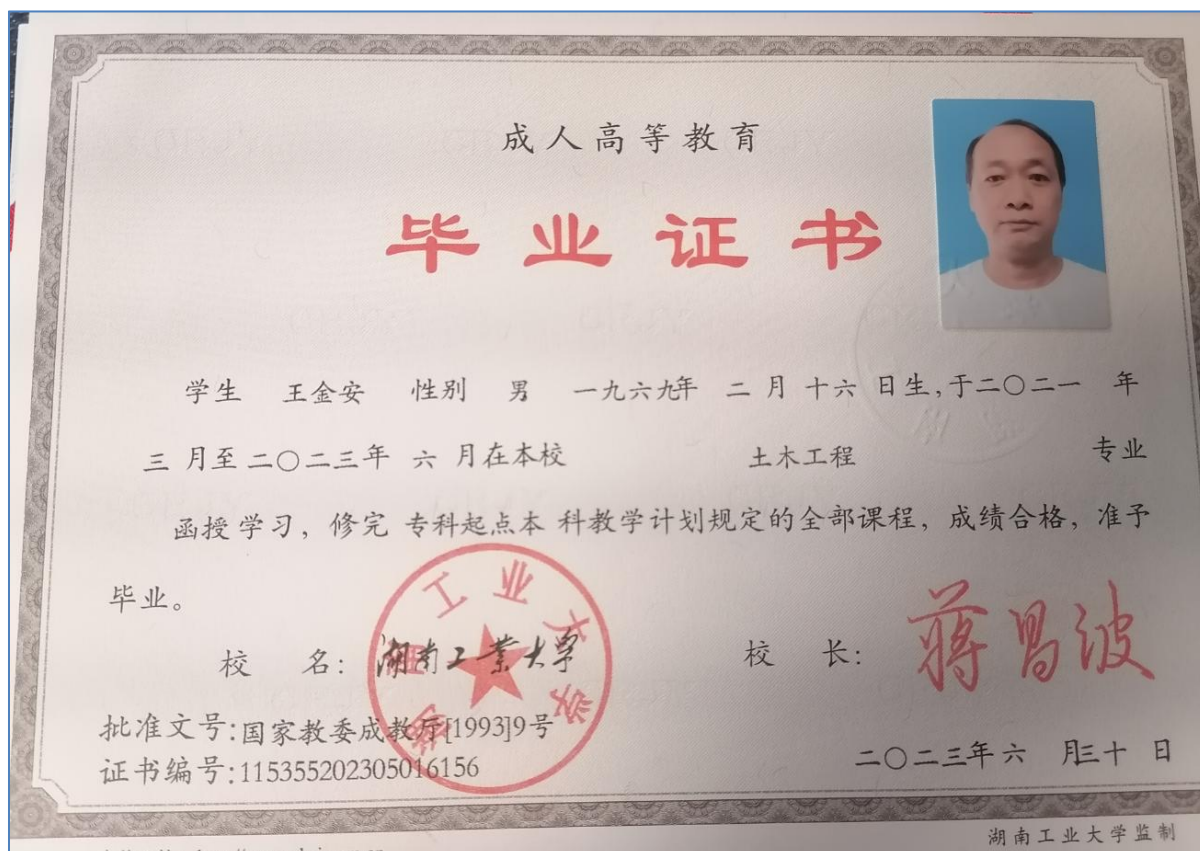 成人高等教育
毕业证书
学生 王金安 性别 男 一九六九年 二 月 十六 日生，于二〇二一 年
三 月至 二〇二三年 六 月在本校 土木工程 专业
函授 学习，修完 专科起点本 科教学计划规定的全部课程，成绩合格，准予
毕业。
校 名： 湖南工业大学 校 长： 蒋昌波
批准文号:国家教委成教厅[1993]9号
证书编号:115355202305016156
二〇二三年 六 月三十 日
湖南工业大学监制
湖南工业大学